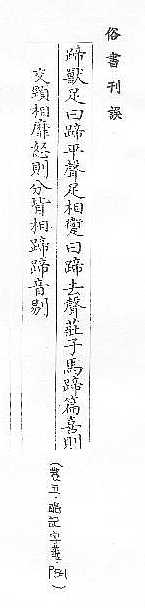 俗書刊誤
蹄獸足曰蹄平聲足相躗曰蹄去聲莊子馬蹄篇喜則
交頸相靡怒則分背相蹄蹄音剔
(卷五·略記字義·P541)